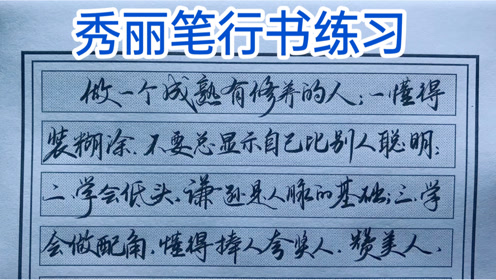 秀丽笔行书练习
做一个成熟有修养的人:一懂得
装糊涂.不要总显示自己比别人聪明;
二.学会低头.谦逊是人脉的基础;三.学
会做配角.懂得捧人夸奖人.赞美人.